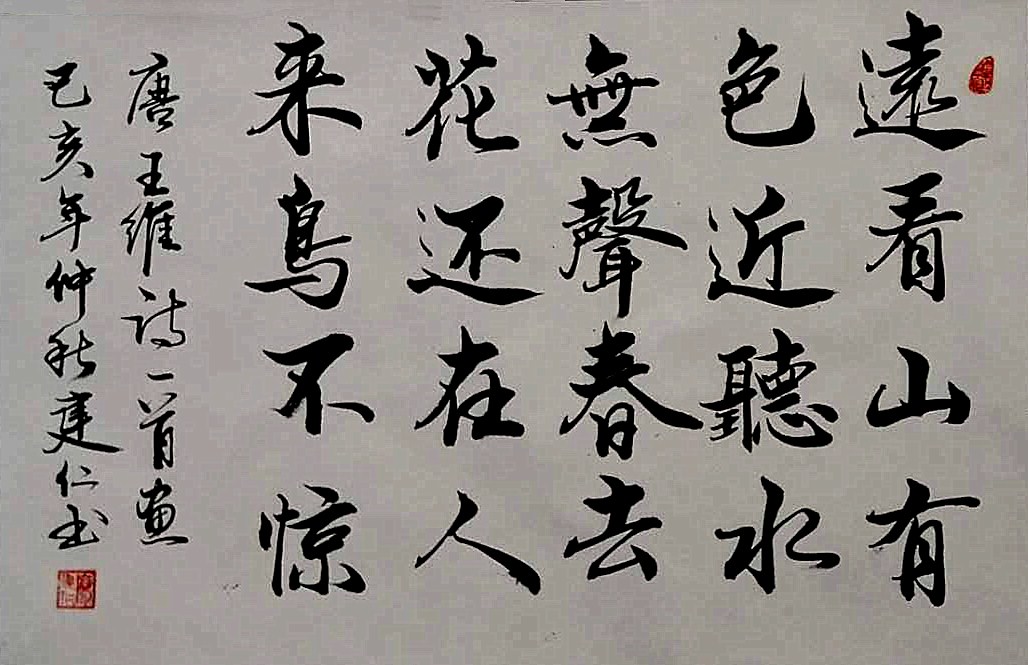 遠看山有
色近聽水
無聲春去
花还在人
来鳥不惊
唐王維诗一首画
己亥年仲秋建仁书